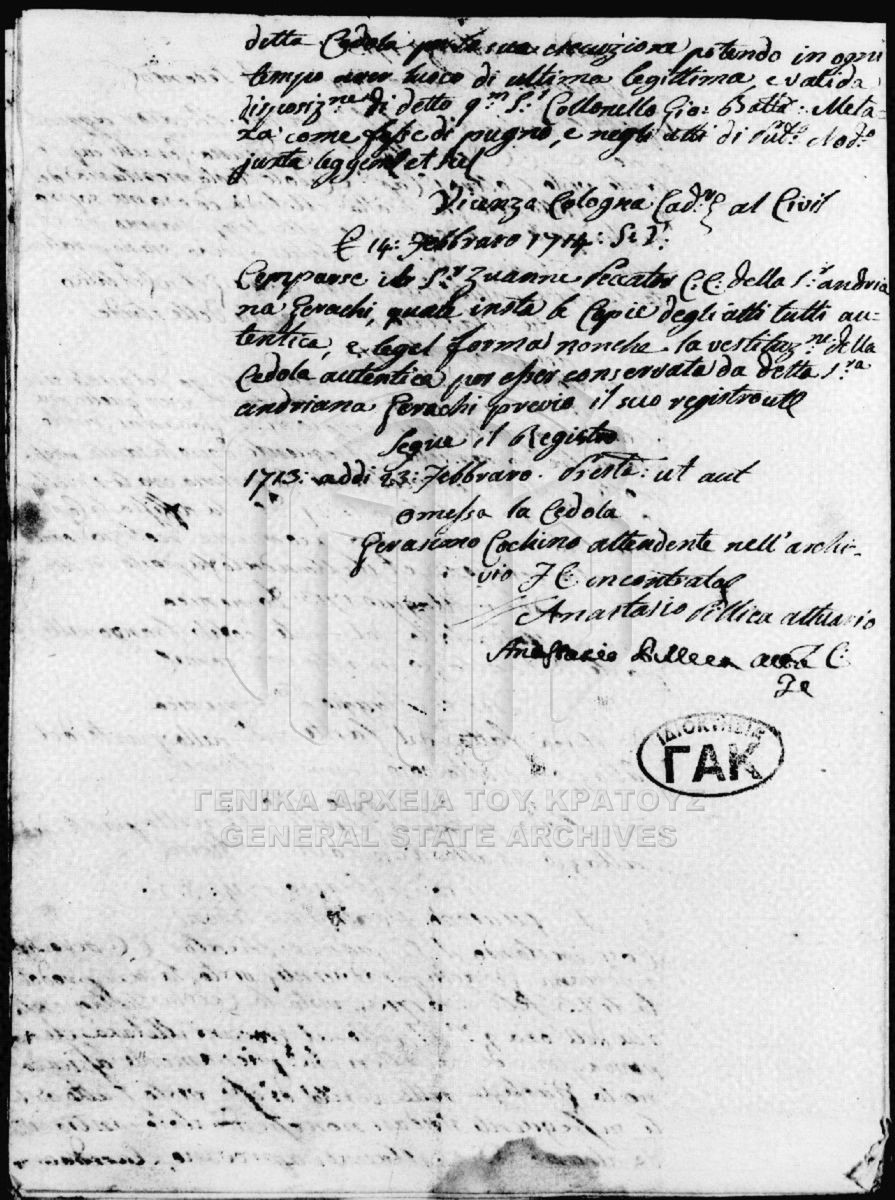 detta Cedola per la sua esecuzione potendo in ogni
tempo aver luoco di ultima legittima e valida
disposizne di detto qm Sr Collonello Gio: Batta: Meta-
xà come fosse di pugno, e negli atti di Nodo
juxta leggem et sic
Vicenza Cologna Cadr al Civil
14: Febbraro 1714: S: V:
Comparse il Sr Zuanne Peccator C. C. della Sra andria
na Gerachi, quale insta le Copie degli atti tutti au-
tentica, e legal forma nonche la restituzne della
Cedola autentica per esser conservata da detta Sra
andriana Gerachi previo il suo registro
Segue il Registro
1713: addi 23: Febbraro. Preste: ut aut
omessa la Cedola
Gerasimo Cochino attendente nell'archi-
vio F. C. incontrato
Anastasio Pillica attuario
Anastasio
ΙΔΙΟΚΤΗΣΙΑ
ΓΑΚ
ΓΕΝΙΚΑ ΑΡΧΕΙΑ ΤΟΥ ΚΡΑΤΟΥΣ
GENERAL STATE ARCHIVES